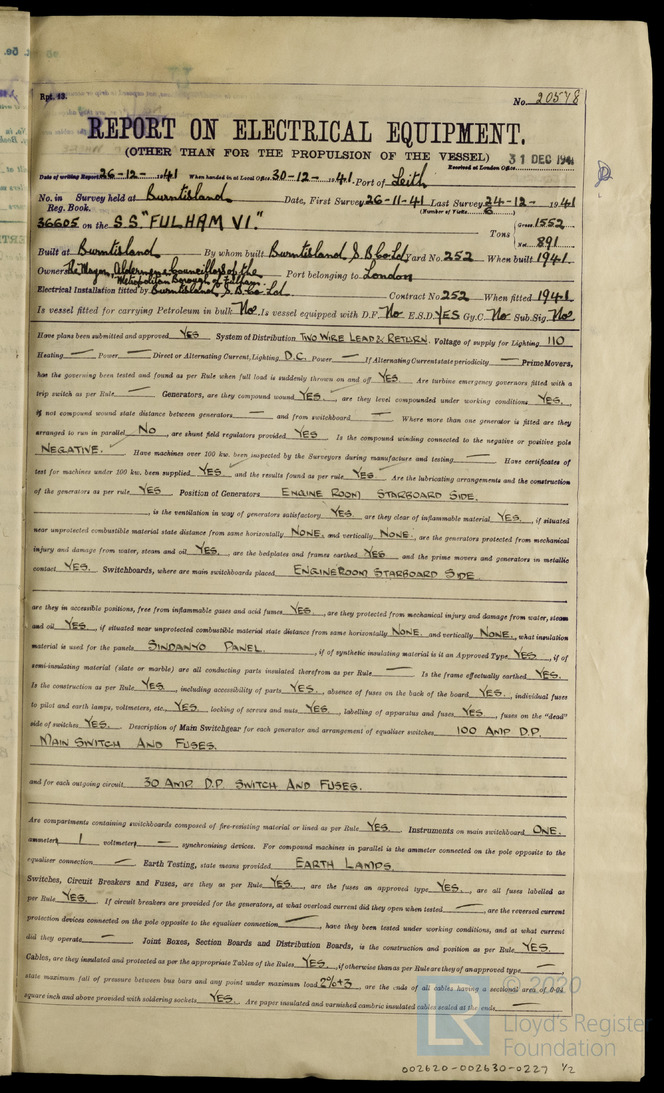 Rpt. 13.
No. 20578
REPORT ON ELECTRICAL EQUIPMENT.
(OTHER THAN FOR THE PROPULSION OF THE VESSEL)
31 DEC 1941
Received at London Office
Date of writing Report 26-12- 1941 When handed in at Local Office 30-12- 1941 Port of Leith
No. in Survey held at Burntisland Date, First Survey 26-11-41 Last Survey 24-12- 1941
Reg. Book. (Number of Visits 6)
36605 on the S.S. "FULHAM VI." Tons { Gross 1552 Net 891
Built at Burntisland By whom built Burntisland S.B. Co Ld Yard No. 252 When built 1941
Owners The Mayor, Aldermen & Councillors of the Metropolitan Borough of Fulham. Port belonging to London
Electrical Installation fitted by Burntisland S.B. Co Ld Contract No 252 When fitted 1941
Is vessel fitted for carrying Petroleum in bulk No Is vessel equipped with D.F. No E.S.D. YES Gy.C. No Sub.Sig. No
Have plans been submitted and approved YES System of Distribution TWO WIRE LEAD & RETURN. Voltage of supply for Lighting 110
Heating — Power — Direct or Alternating Current, Lighting D.C. Power — If Alternating Current state periodicity — Prime Movers,
has the governing been tested and found as per Rule when full load is suddenly thrown on and off YES. Are turbine emergency governors fitted with a
trip switch as per Rule — Generators, are they compound wound YES, are they level compounded under working conditions YES,
if not compound wound state distance between generators — and from switchboard — Where more than one generator is fitted are they
arranged to run in parallel No, are shunt field regulators provided YES Is the compound winding connected to the negative or positive pole
NEGATIVE. Have machines over 100 kw. been inspected by the Surveyors during manufacture and testing — Have certificates of
test for machines under 100 kw. been supplied YES and the results found as per rule YES Are the lubricating arrangements and the construction
of the generators as per rule YES Position of Generators ENGINE ROOM STARBOARD SIDE.
, is the ventilation in way of generators satisfactory YES. are they clear of inflammable material YES, if situated
near unprotected combustible material state distance from same horizontally NONE. and vertically NONE., are the generators protected from mechanical
injury and damage from water, steam and oil YES. are the bedplates and frames earthed YES and the prime movers and generators in metallic
contact YES. Switchboards, where are main switchboards placed ENGINE ROOM STARBOARD SIDE
are they in accessible positions, free from inflammable gases and acid fumes YES., are they protected from mechanical injury and damage from water, steam
and oil YES, if situated near unprotected combustible material state distance from same horizontally NONE. and vertically NONE., what insulation
material is used for the panels SINDANYO PANEL., if of synthetic insulating material is it an Approved Type YES, if of
semi-insulating material (slate or marble) are all conducting parts insulated therefrom as per Rule — Is the frame effectually earthed YES.
Is the construction as per Rule YES., including accessibility of parts YES., absence of fuses on the back of the board YES., individual fuses
to pilot and earth lamps, voltmeters, etc., YES. locking of screws and nuts YES., labelling of apparatus and fuses YES, fuses on the "dead"
side of switches YES. Description of Main Switchgear for each generator and arrangement of equaliser switches 100 AMP D.P.
MAIN SWITCH AND FUSES.
and for each outgoing circuit 30 AMP. D.P. SWITCH AND FUSES.
Are compartments containing switchboards composed of fire-resisting material or lined as per Rule YES. Instruments on main switchboard ONE.
ammeters 1 voltmeters — synchronising devices. For compound machines in parallel is the ammeter connected on the pole opposite to the
equaliser connection — Earth Testing, state means provided EARTH LAMPS.
Switches, Circuit Breakers and Fuses, are they as per Rule YES., are the fuses an approved type YES., are all fuses labelled as
per Rule YES. If circuit breakers are provided for the generators, at what overload current did they open when tested —, are the reversed current
protection devices connected on the pole opposite to the equaliser connection —, have they been tested under working conditions, and at what current
did they operate — Joint Boxes, Section Boards and Distribution Boards, is the construction and position as per Rule YES.
Cables, are they insulated and protected as per the appropriate Tables of the Rules YES., if otherwise than as per Rule are they of an approved type —,
state maximum fall of pressure between bus bars and any point under maximum load 2%+3, are the ends of all cables having a sectional area of 0.04
square inch and above provided with soldering sockets YES. Are paper insulated and varnished cambric insulated cables sealed at the ends
© 2020
LR
Lloyd's Register
Foundation
002620-002630-0227 1/2